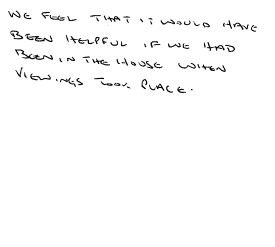 WE FEEL THAT IT WOULD HAVE
BEEN HELPFUL IF WE HAD
BEEN IN THE HOUSE WHEN
VIEWINGS TOOK PLACE.